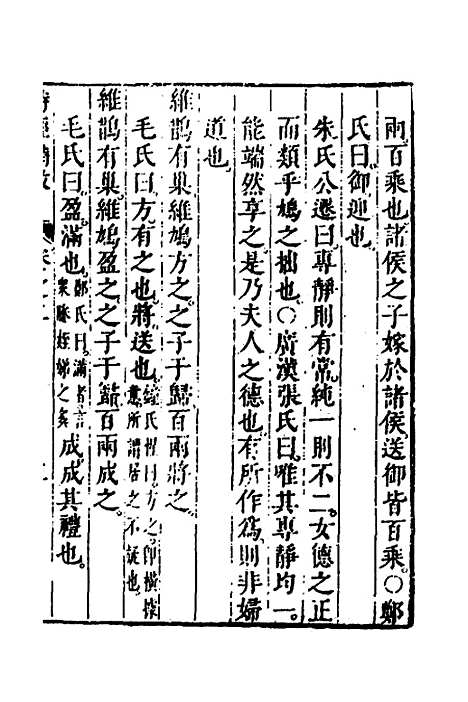 兩百乘也諸侯之子嫁於諸侯送御皆百乘。○鄭
氏曰御迎也
朱氏公遷曰專靜則有常純一則不二。女德之正
而類乎鳩之拙也○廣漢張氏曰唯其專靜均一。
能端然享之是乃夫人之德也有所作爲則非婦
道也
維鵲有巢維鳩方之之子于歸百兩將之
毛氏曰方有之也將送也 氏 曰方之卽橫 意所謂居之不疑也
維鵲有巢維鳩盈之之子于歸百兩成之。
毛氏曰盈滿也鄭氏曰滿者言衆媵姪娣之多成成其禮也。